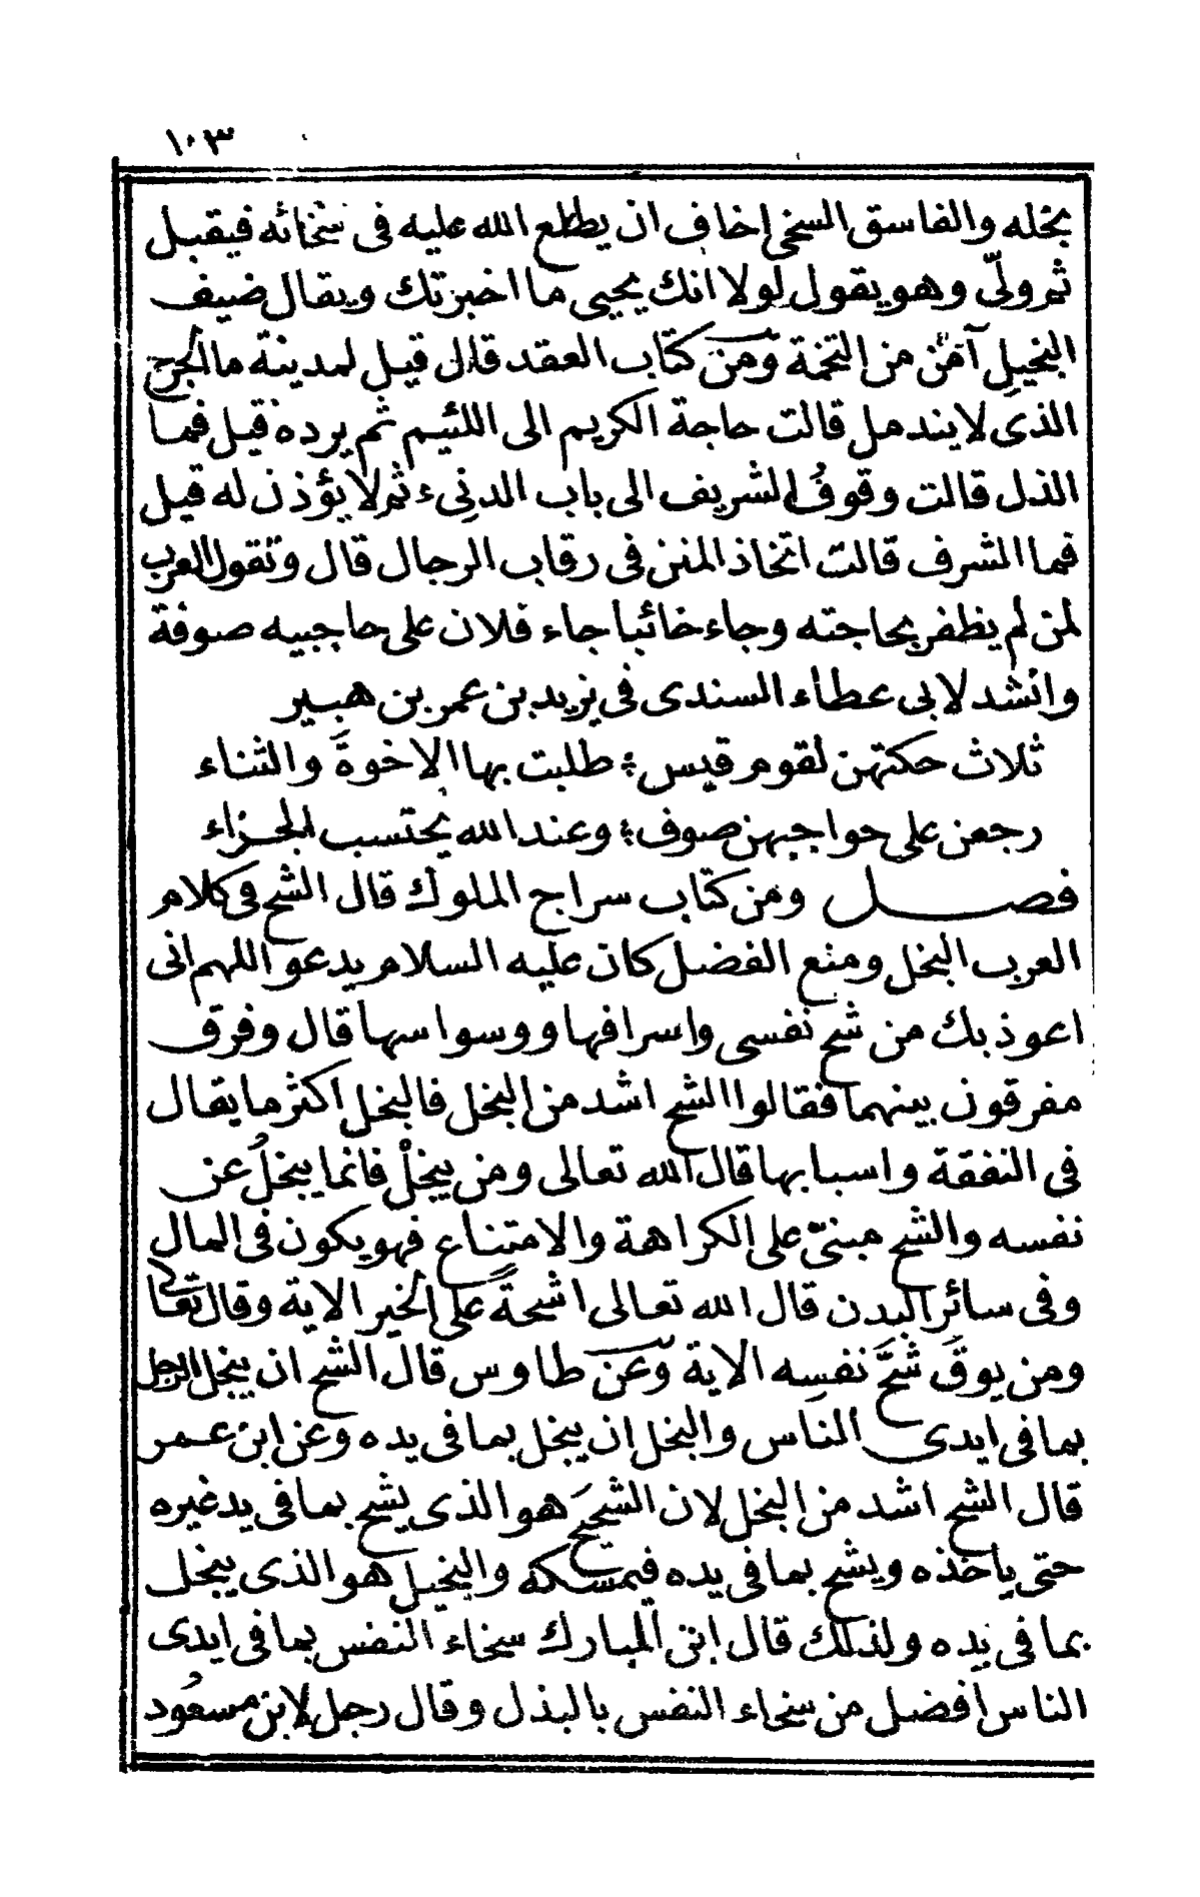 ١٠٣
بخله والفاسق السخى اخاف ان يطلع الله عليه فى سخائه فيقبل
ثم ولّى وهو يقول لولا انك يحيى ما اخبرتك ويقال ضيف
البخيل آمن من التخمة ومن كتاب العقد قال قيل لمدينة ما الجرح
الذى لا يندمل قالت حاجة الكريم الى اللئيم ثم يرده قيل فما
الذل قالت وقوف الشريف الى باب الدنىء ثم لا يؤذن له قيل
فما الشرف قالت اتخاذ المنن فى رقاب الرجال قال وتقول العرب
لمن لم يظفر بحاجته وجاء خائبا جاء فلان على حاجبيه صوفة
وانشد لابى عطاء السندى فى يزيد بن عمر بن هبير
ثلاث حكتهن لقوم قيس ؛ طلبت بها الاخوةَ والثناء
رجعن على حواجبهن صوف ؛ وعند الله يحتسب الجزاء
فصل ومن كتاب سراج الملوك قال الشح فى كلام
العرب البخل ومنع الفضل كان عليه السلام يدعو اللهم انى
اعوذ بك من شح نفسى واسرافها ووسواسها قال وفرق
مفرقون بينهما فقالوا الشح اشد من البخل فالبخل اكثر ما يقال
فى النفقة واسبابها قال الله تعالى ومن يبخلْ فانما يبخلُ عن
نفسه والشح مبنىّ على الكراهة والامتناع فهو يكون فى المال
وفى سائر البدن قال الله تعالى اشحةً على الخير الاية وقال تعالى
ومن يوقَ شحَّ نفسِه الاية وعن طاوس قال الشح ان يبخل الرجل
بما فى ايدى الناس والبخل ان يبخل بما فى يده وعن ابن عمر
قال الشح اشد من البخل لان الشحيحَ هو الذى يشح بما فى يد غيره
حتى ياخذه ويشح بما فى يده فيمسكه والبخيل هو الذى يبخل
بما فى يده ولذلك قال ابن المبارك سخاء النفس بما فى ايدى
الناس افضل من سخاء النفس بالبذل وقال رجل لابن مسعُود